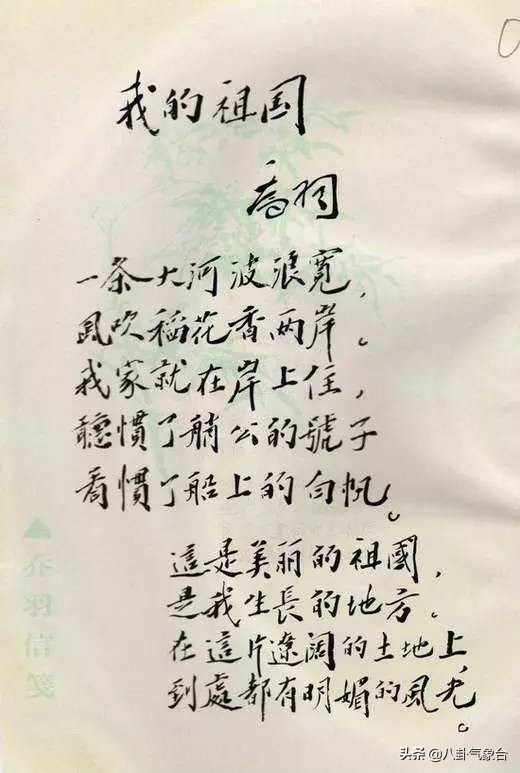 我的祖国
喬羽
一条大河波浪寬，
風吹稻花香两岸。
我家就在岸上住，
聽慣了艄公的號子
看慣了船上的白帆。
這是美丽的祖國，
是我生長的地方．
在這片遼阔的土地上，
到處都有明媚的風光。
乔羽信笺
头条 @八卦气象台